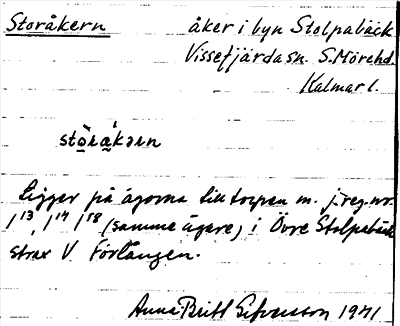 Storåkern åker i byn Stolpabäck
Vissefjärda sn. S. Möre hd.
Kalmar l.
stòrákərn
Ligger på ägorna till torpen m. j:reg.nr.
1¹³, 1¹⁴ 1¹⁸ (samme ägare) i Övre Stolpabäck
strax V Förlången.
Anna Britt Sifvensson 1941